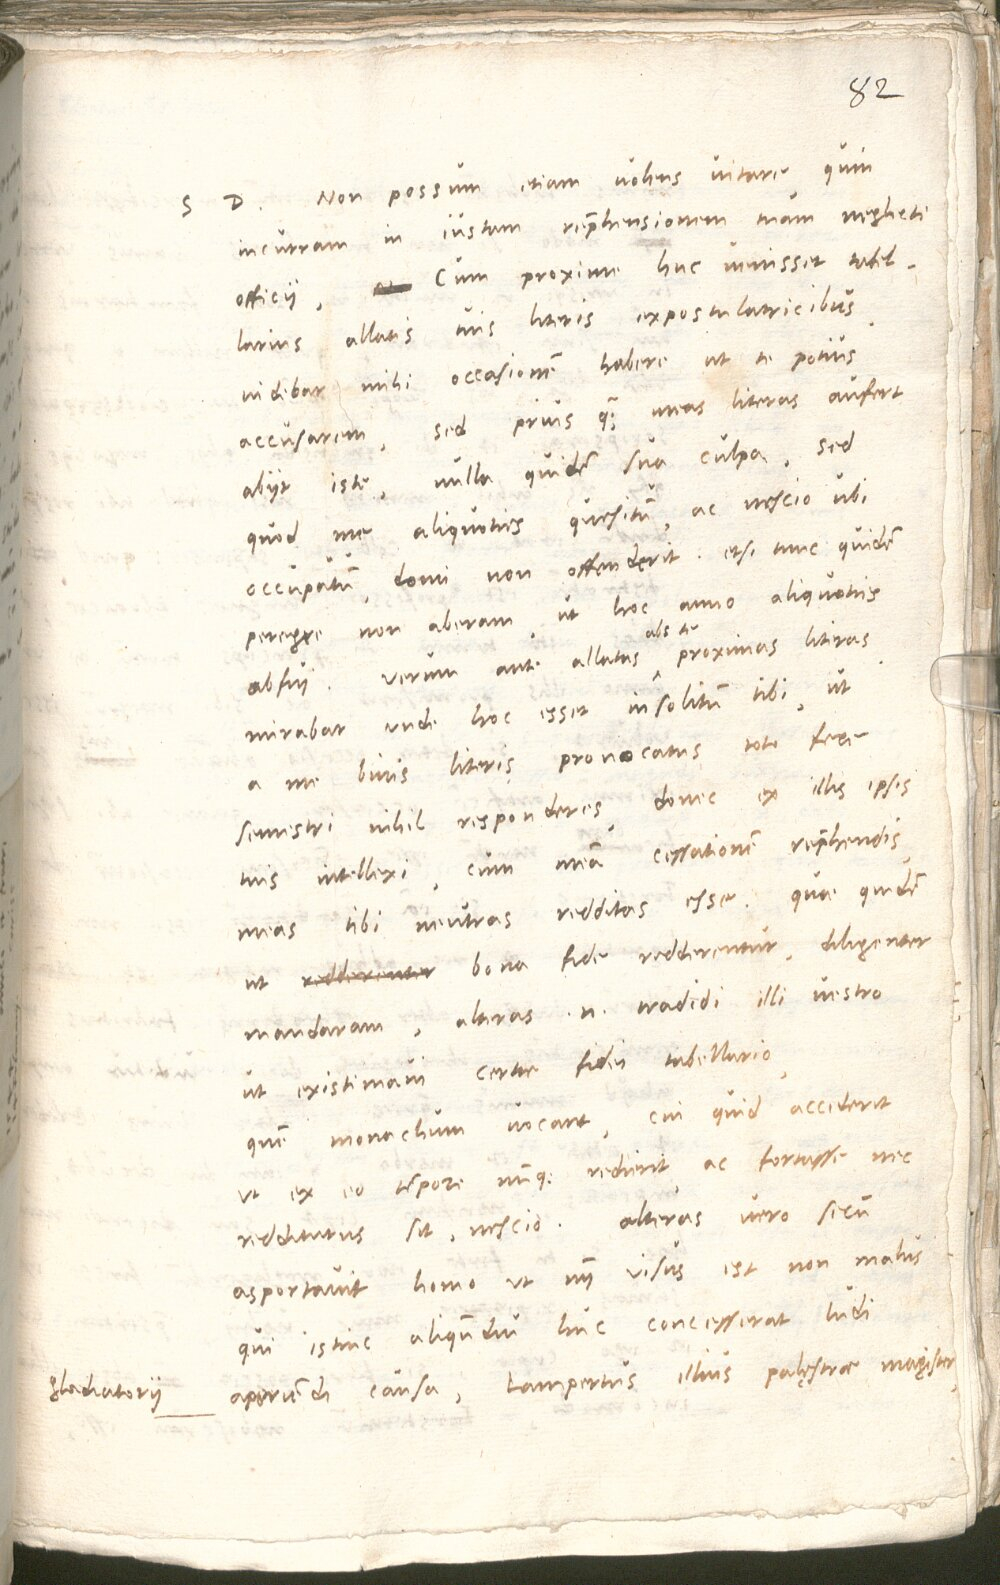 82
S D. Non possum etiam volens vitare, quin
incurram in iustam rep̄hensionem tuam neglecti
officij, Cum proxime huc venisset tabel-
larius allatis tuis literis expostulatricibus,
videbar mihi occasionē habere ut te potius
accusarem, sed prius q̄ꝫ meas literas aufert
abijt iste, nulla quidē sua culpa, sed
quod me aliquoties quesitū, ac nescio ubi
occupatū, domi non offenderit. etsi tunc quidē
peregre non aberam, ut hoc anno aliquoties
abfui. verum ante allatas abs te proximas literas
mirabar unde hoc esset insolitū tibi, ut
a me binis literis provocatus toto fere
semestri nihil responderes, donec ex illis ipsis
tuis intellexi, cum meā cessationē rep̄hendis,
meas tibi neutras redditas esse. quae quidē
ut redderentur bona fide redderentur, diligenter
mandaram, alteras .n. tradidi illi vestro
ut existimavi certae fidei tabellario,
quē monachum vocant, cui quid acciderit
ut ex eo tēpore nūqꝫ redierit, ac fortasse nec
redditurus sit, nescio. alteras vero secū
asportavit homo ut mī visus est non malus
qui istinc aliqūdiu huc concesserat ludi
gladiatorij
aperiēdi causa, Lampertus illius palęstrae magister,